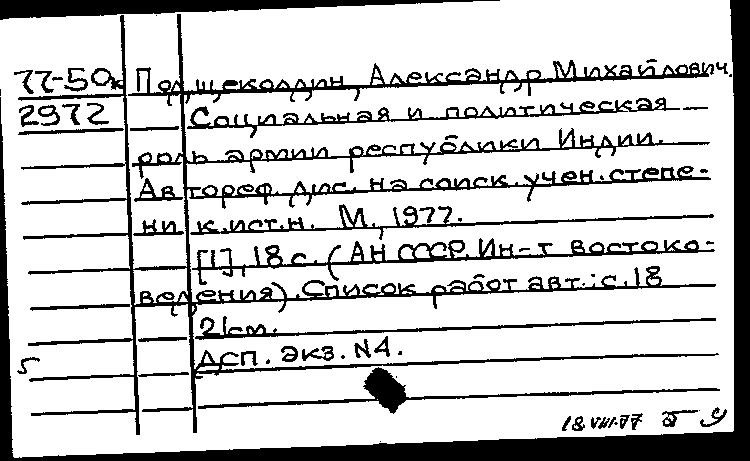 77-50к Подщеколдин, Александр Михайлович.
2972 Социальная и политическая
роль армии республики Индии.
Автореф. дис. на соиск. учен. степе-
ни к.ист.н. М., 1977.
[1], 18 с. (АН СССР. Ин-т востоко-
ведения). Список работ авт.: с. 18
21см.
ДСП. экз. N4.
5
18.VIII.77